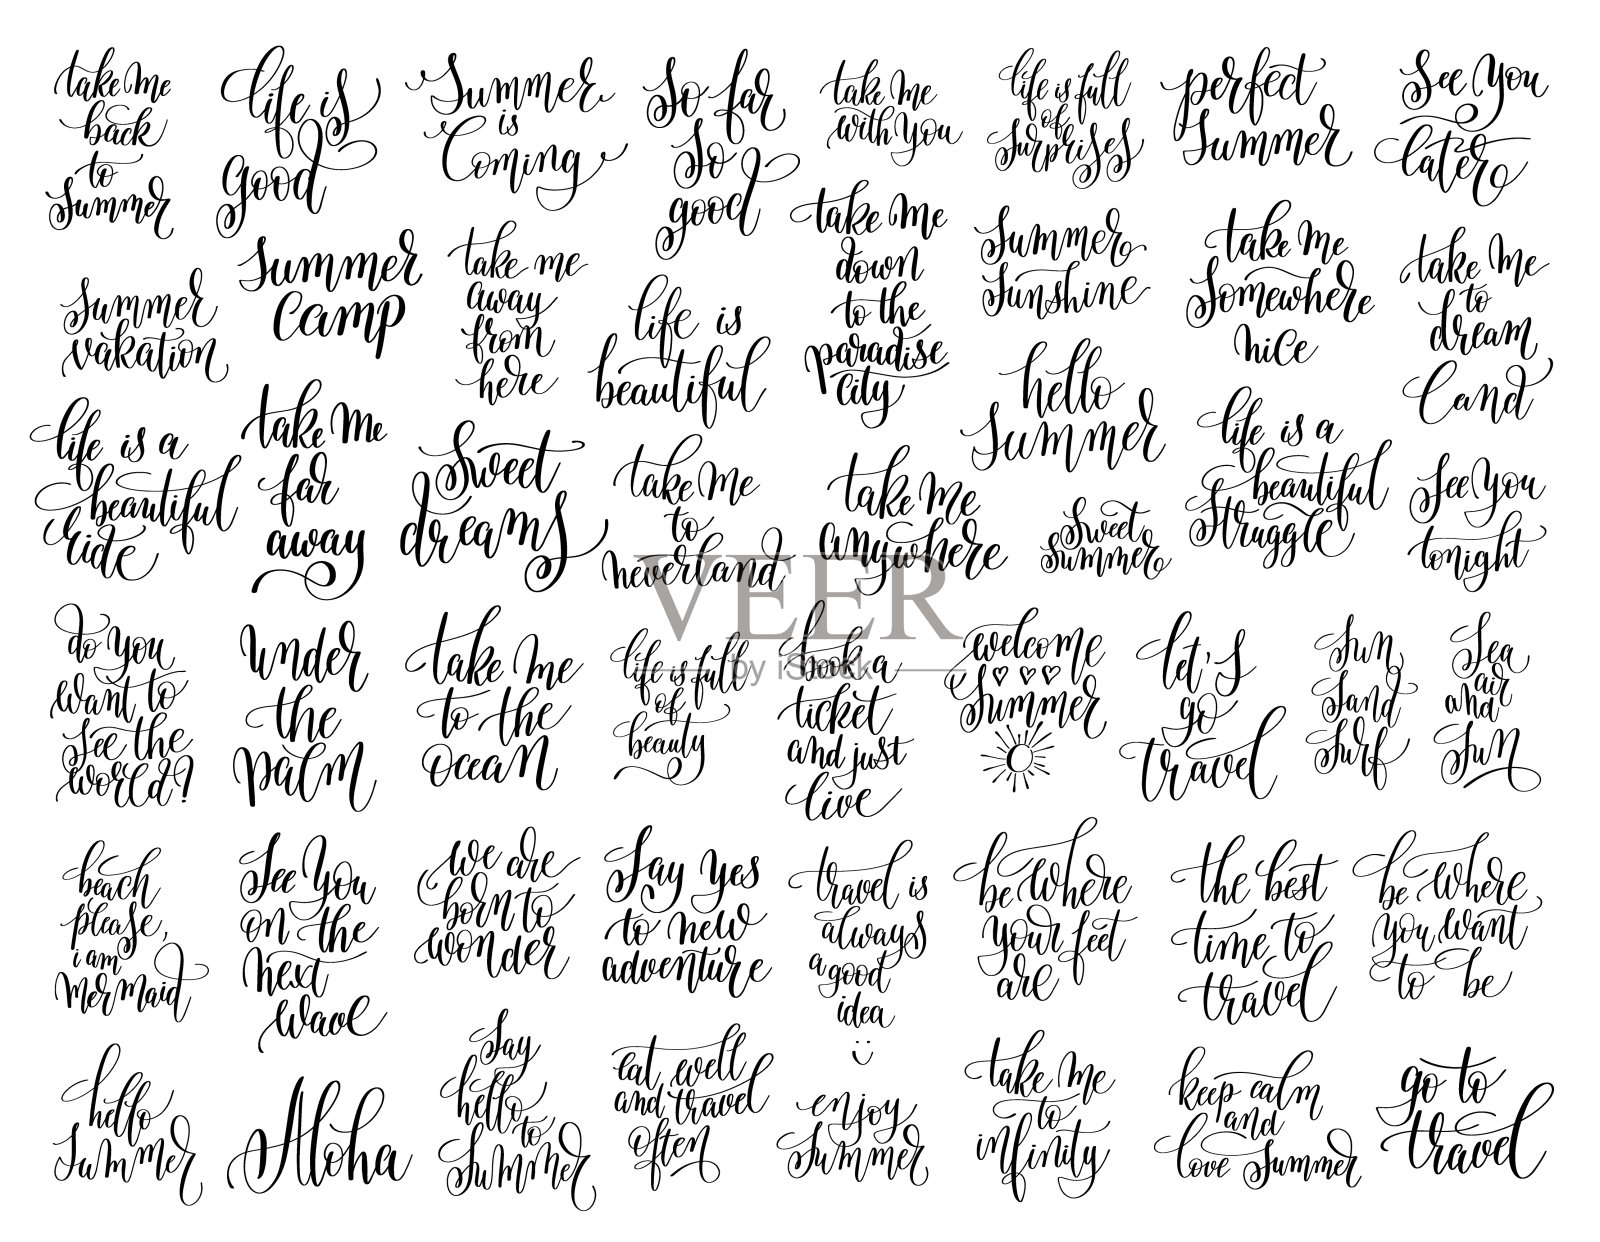 take me
back
to
summer
life is
good
Summer
is
Coming
So far
So
good
take me
with you
life is full
of
surprises
perfect
summer
See you
later
summer
vakation
summer
camp
take me
away
from
here
life is
beautiful
take me
down
to the
paradise
city
summer
sunshine
take me
somewhere
nice
take me
to
dream
land
life is a
beautiful
ride
take me
far
away
sweet
dreams
take me
to
neverland
take me
anywhere
hello
summer
sweet
summer
life is a
beautiful
struggle
see you
tonight
do you
want to
see the
world?
under
the
palm
take me
to the
ocean
life is full
of
beauty
book a
ticket
and just
live
welcome
summer
let's
go
travel
sun
sand
surf
Sea
air
and
sun
beach
please,
i am
mermaid
see you
on the
next
wave
we are
born to
wonder
say yes
to new
adventure
travel is
always
a good
idea
be where
your feet
are
the best
time to
travel
be where
you want
to be
hello
summer
Aloha
say
hello
to
summer
eat well
and travel
often
enjoy
summer
take me
to
infinity
keep calm
and
love summer
go to
travel
VEER
by iStock